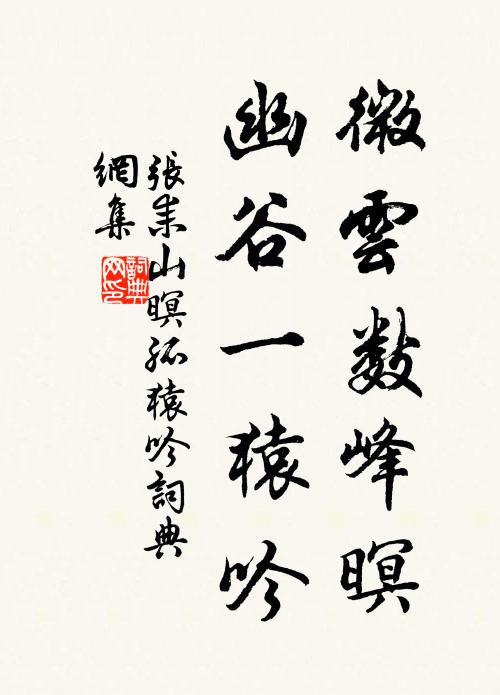 微雲數峰暝
幽谷一猿吟
張耒山暝孤猿吟詞典
網集
詞典
网印